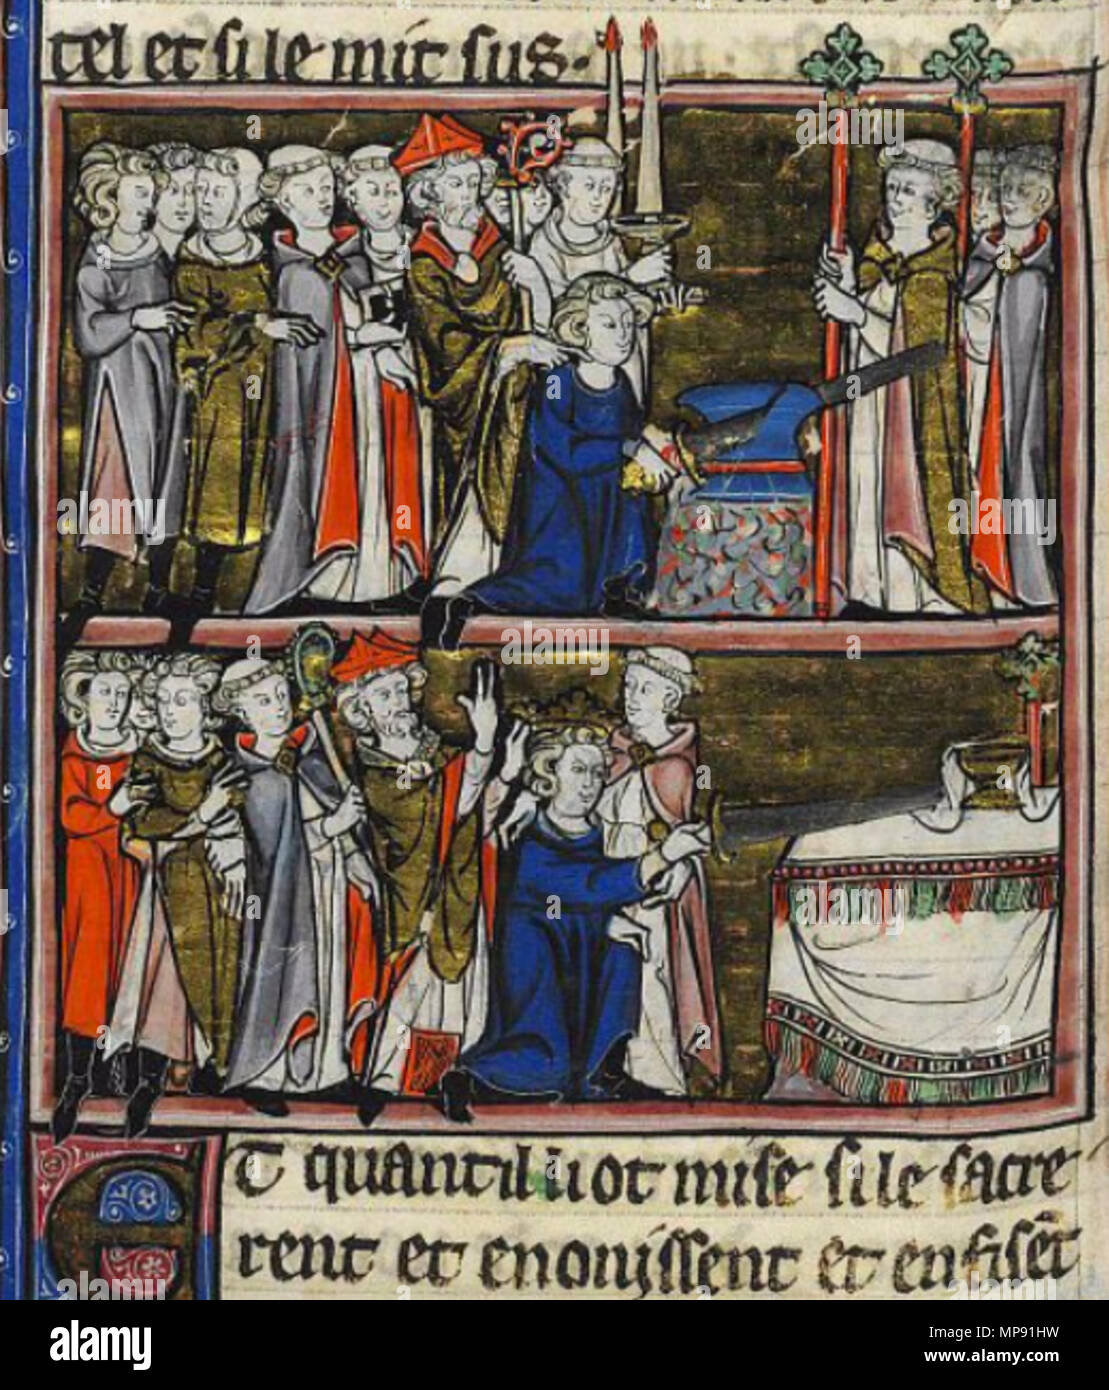 tel et si le mit sus.
Et quant il li ot mise si le sacre
rent et enoinssent et en fisēt
alamy
Image ID: MP91HW
www.alamy.com